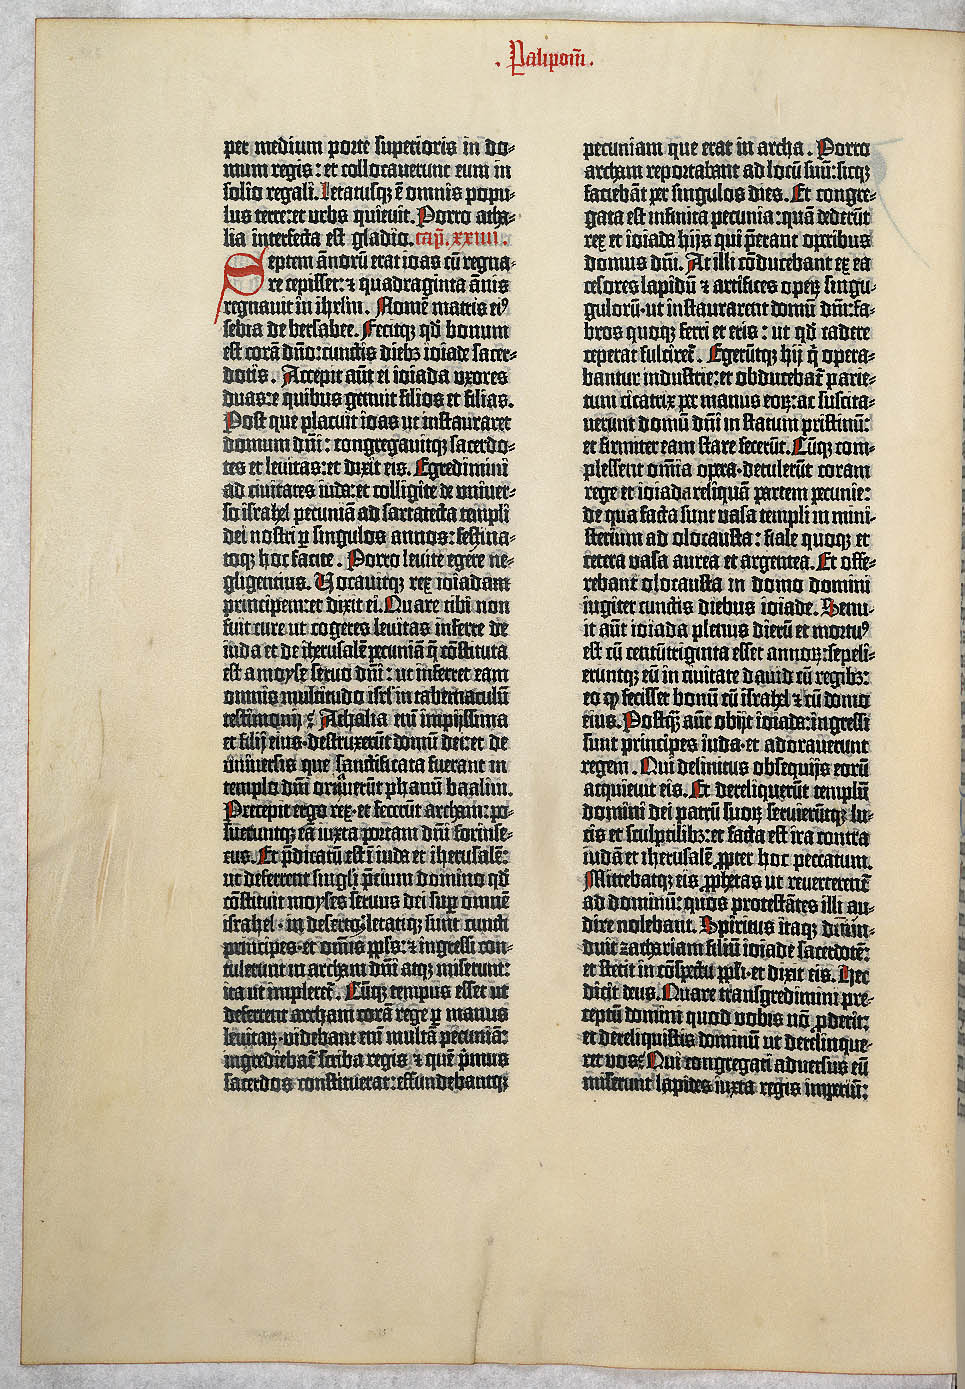 . Palipom̄ .
per medium porte superioris in do-
mum regis: et collocaverunt eum in
solio regali. Letatusq; ē omnis popu-
lus terre: et urbs quievit. Porro atha-
lia interfecta est gladio. Cap̄. xxiiii.
Septem ānorū erat ioas cū regna-
re cepisset: ⁊ quadraginta ānis
regnavit in ihrlm. Nomē matris eiꝰ
sebia de bersabee. Fecitq; qd̄ bonum
est corā dn̄o: cunctis diebꝫ ioiade sacer-
dotis. Accepit aūt ei ioiada uxores
duas: e quibus genuit filios et filias.
Post que placuit ioas ut instauraret
domum dn̄i: congregavitq; sacerdo-
tes et levitas: et dixit eis. Egredimini
ad civitates iuda: et colligite de univer-
so israhel pecuniā ad sartatecta templi
dei nostri ꝑ singulos annos: festina-
toq; hoc facite. Porro levite egere ne-
gligentius. Vocavitq; rex ioiadam
principem: et dixit ei. Quare tibi non
fuit cure ut cogeres levitas inferre de
iuda et de iherusalē pecuniā q̄ cōstituta
est a moyse servo dn̄i: ut inferret eam
omnis multitudo isrl in tabernaculū
testimonij? Athalia eni impijssima
et filij eius· destruxerūt domū dei: et de
universis que sanctificata fuerant in
templo dn̄i ornaverūt phanū baalim.
Precepit ergo rex· et fecerūt archam: po-
sueruntq; eā iuxta portam dn̄i forinse-
cus. Et p̄dicatū est i iuda et iherusalē:
ut deferrent singli p̄cium domino qd̄
cōstituit moyses servus dei sup omnē
israhel· in deserto. Letatiq; sunt cuncti
principes· et om̄is ppls: ⁊ ingressi con-
tulerunt in archam dn̄i atq; miserunt:
ita ut impleret̄. Cūq; tempus esset ut
deferrent archam corā rege ꝑ manus
levitaꝝ· videbant eni multā pecuniā:
ingrediebat̄ scriba regis ⁊ quē p̄mus
sacerdos constituerat: effundebantq;
pecuniam que erat in archa. Porro
archam reportabant ad locū suū: sicq;
faciebāt per singulos dies. Et congre-
gata est infinita pecunia: quā dederūt
rex et ioiada hijs qui p̄erant operibus
domus dn̄i. At illi cōducebant ex ea
cesores lapidū ⁊ artifices operꝝ singu-
gulorū· ut instaurarent domū dn̄i: fa-
bros quoq; ferri et eris: ut qd̄ cadere
ceperat fulciret̄. Egerūtq; hij q̄ opera-
bantur industrie: et obducebat̄ parie-
tum cicatrix per manus eoꝝ: ac suscita-
verunt domū dn̄i in statum pristinū:
et firmiter eam stare fecerūt. Cūq; com-
plessent om̄ia opera· detulerūt coram
rege et ioiada reliquā partem pecunie:
de qua facta sunt vasa templi in mini-
sterium ad olocausta: fiale quoq; et
cetera vasa aurea et argentea. Et offe-
rebant olocausta in domo domini
iugiter cunctis diebus ioiade. Senu-
it aūt ioiada plenus dierū et mortuꝰ
est cū centūtriginta esset annoꝝ: sepeli-
eruntq; eū in civitate david cū regibꝫ:
eo qꝫ fecisset bonū cū israhel ⁊ cū domo
eius. Postqꝫ aūt obijt ioiada: ingressi
sunt principes iuda· et adoraverunt
regem. Qui delinitus obsequijs eorū
acquievit eis. Et dereliquerūt templū
domini dei patrū suoꝝ servierūtq; lu-
cis et sculptilibꝫ: et facta est ira contra
iudā et iherusalē ꝓpter hoc peccatum.
Mittebatq; eis ꝓphetas ut reverterentᷣ
ad dominū: quos protestātes illi au-
dire nolebant. Spiritus itaq; dn̄i in-
duit zachariam filiū ioiade sacerdotē:
et stetit in cōspectu ppli· et dixit eis. Hec
dicit deus. Quare transgredimini pre-
ceptū domini quod vobis nō ꝓderit:
et dereliquistis dominū ut derelinque-
ret vos? Qui congregati adversus eū
miserunt lapides iuxta regis imperiū: